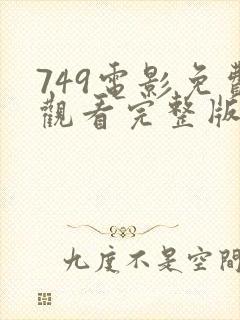 749電影免費
觀看完整版
九度不是空間